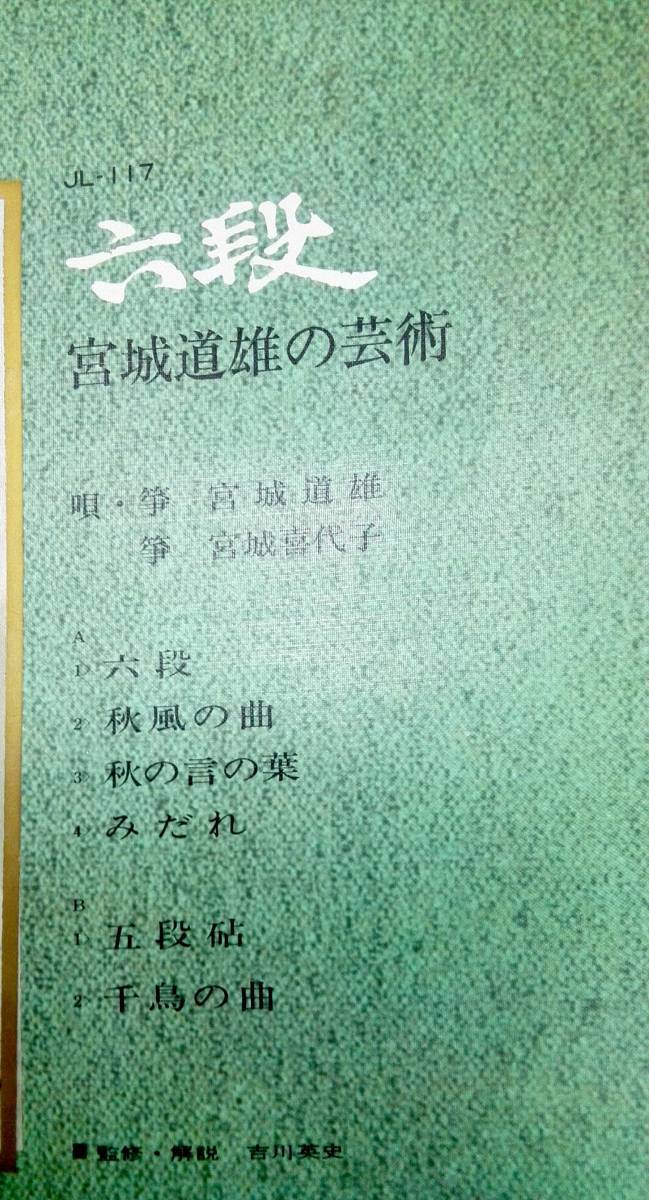 JL-117
六段
宮城道雄の芸術
唄・箏 宮城道雄
箏 宮城喜代子
A
1 六段
2 秋風の曲
3 秋の言の葉
4 みだれ
B
1 五段砧
2 千鳥の曲
■監修・解説 吉川英史